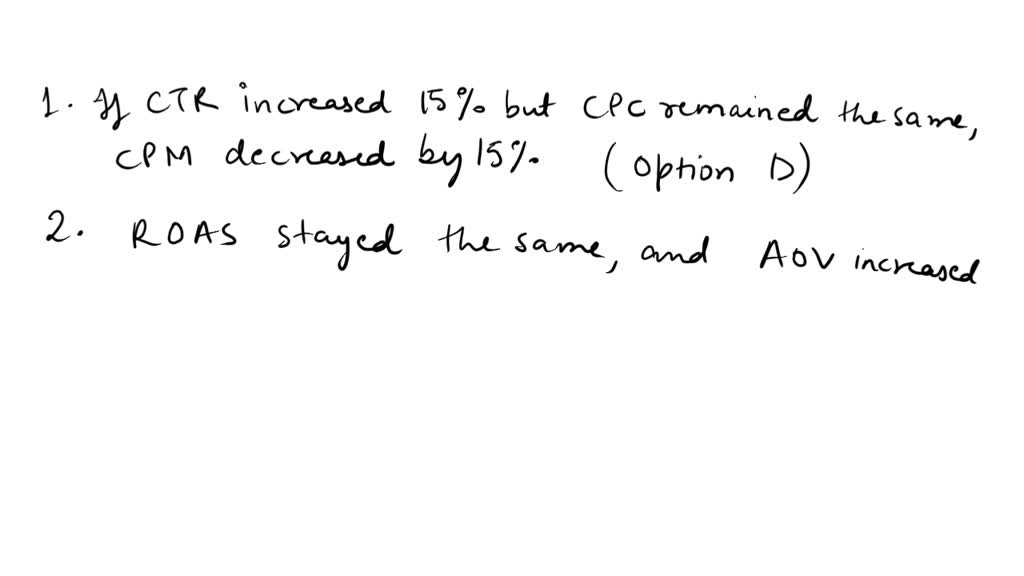 1. If CTR increased 15% but CPC remained the same,
CPM decreased by 15%. (Option D)
2. ROAS stayed the same, and AOV increased